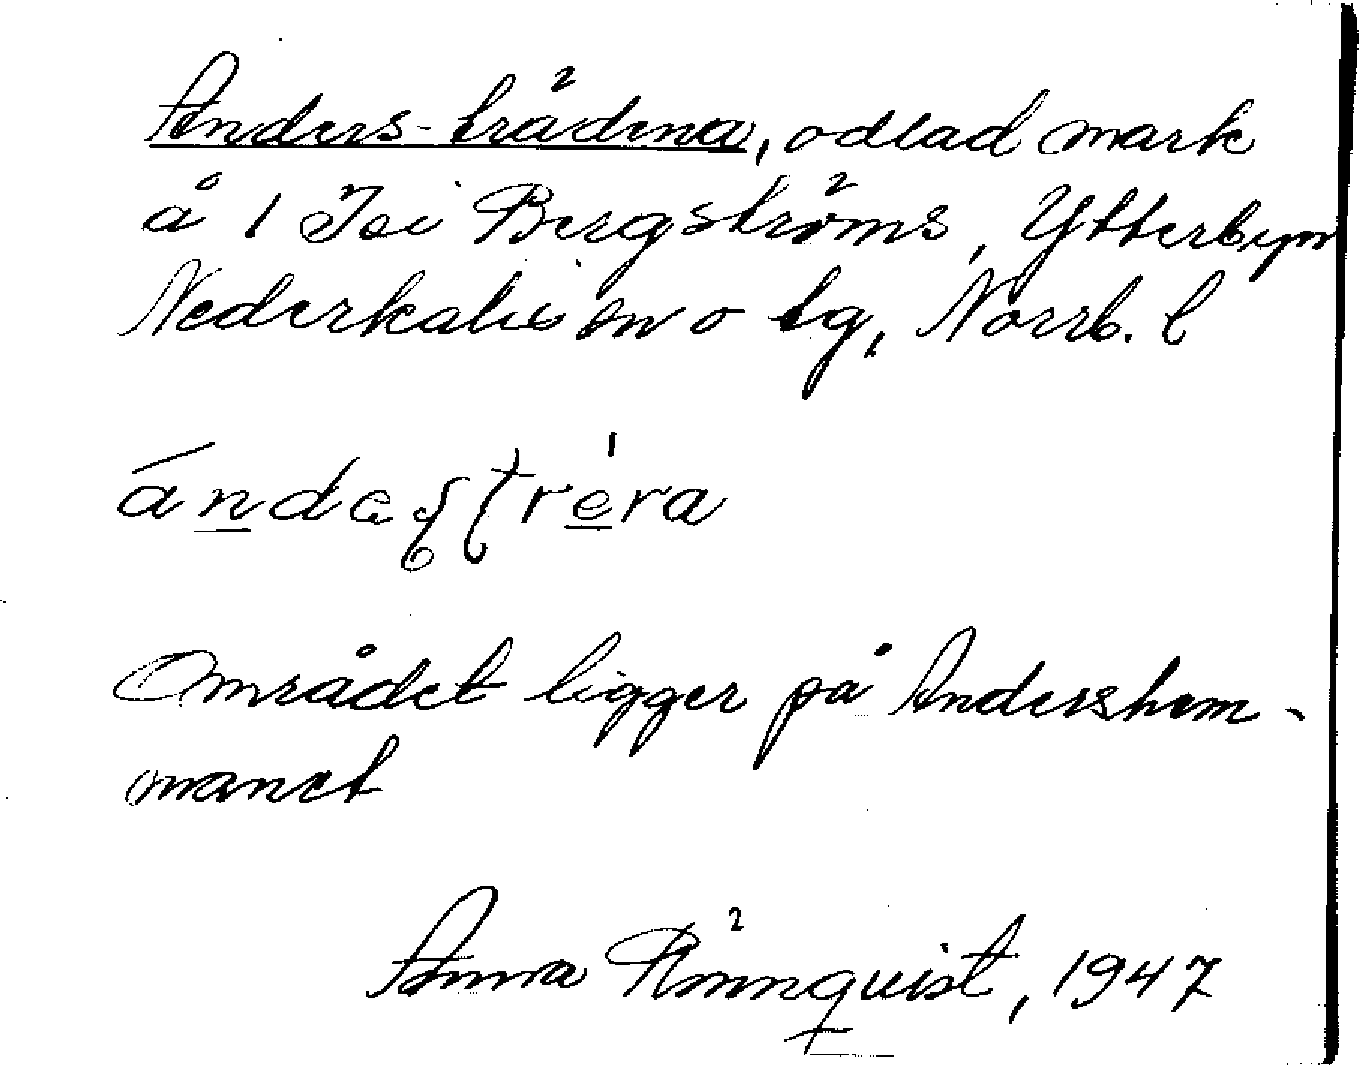 Anders-trädena, odlad mark
å 1 Isi Bergströms, Ytterbyn
Nederkalix sn o tg, Norrb. l
ándeʂʈréra
Området ligger på Andershem-
manet
Anna Rönnquist, 1947